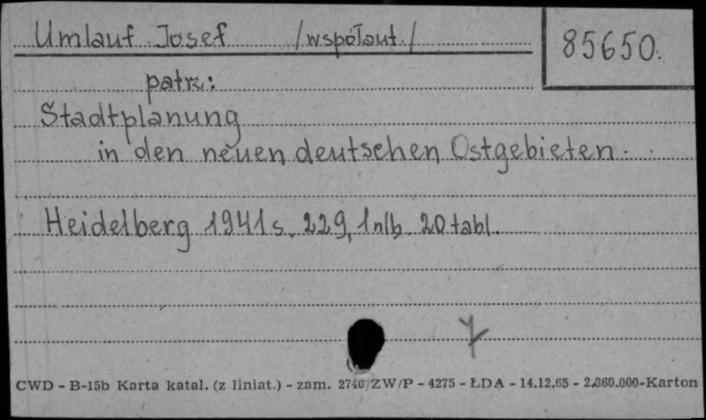 Umlauf Josef /współaut./
85650.
patrz:
Stadtplanung
in den neuen deutschen Ostgebieten.
Heidelberg 1941 s. 229, 1 nlb. 20 tabl.
CWD - B-15b Karta katal. (z liniat.) - zam. 2740/ZW/P - 4275 - ŁDA - 14.12.65 - 2.860.000-Karton